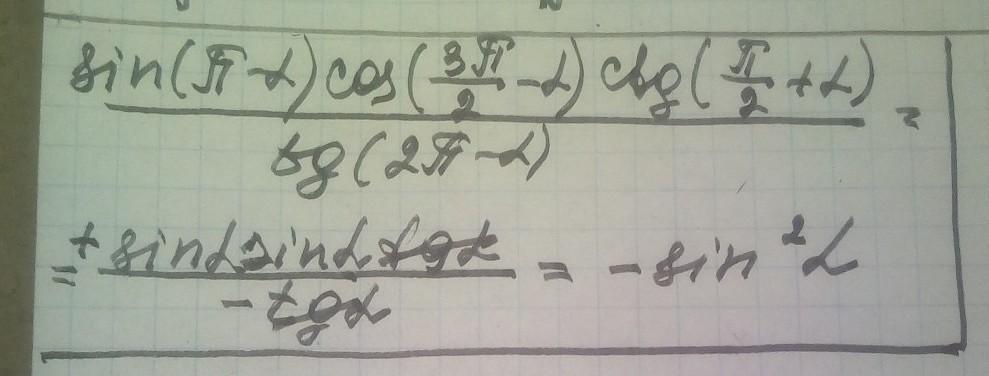 sin(π-α)cos(3π/2-α) ctg(π/2+α)
tg(2π-α) =
=+ sinα sinα tgα / -tgα = - sin²α